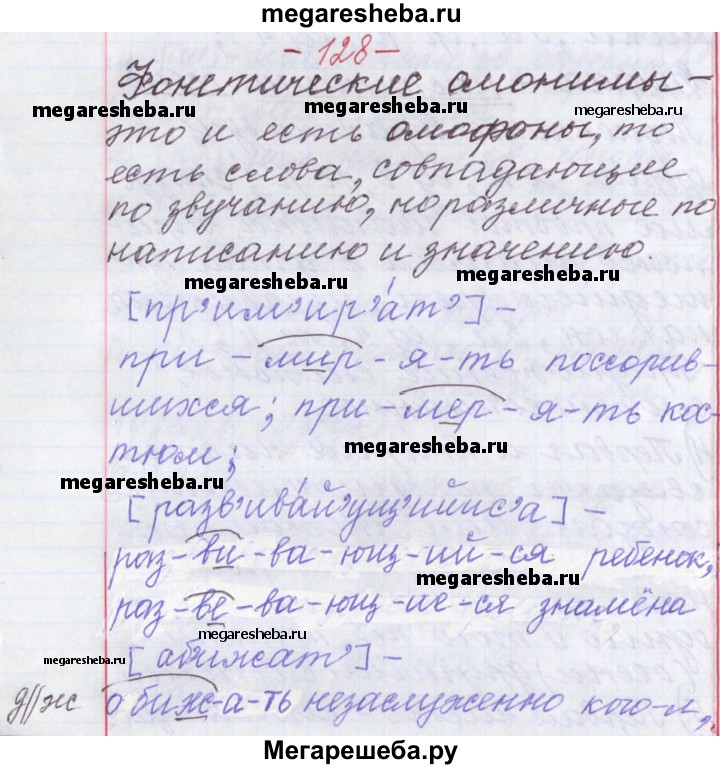 megaresheba.ru
- 128 -
Фонетические омонимы -
megaresheba.ru megaresheba.ru megaresheba.ru
это и есть омофоны, то
есть слова, совпадающие
по звучанию, но различные по
написанию и значению.
megaresheba.ru
[пр'им'ир'áт'] -
при - мир - я - ть поссорив-
шихся; при - мер - я - ть кос-
тюм;
megaresheba.ru
megaresheba.ru
[разв'ивáй'ущ'ийис'а] -
раз - ви - ва - ющ - ий - ся ребенок,
megaresheba.ru
раз - ве - ва - ющ - ие - ся знамёна
megaresheba.ru
megaresheba.ru
[абижат'] -
д//ж обиж - а - ть незаслуженно кого-л,
Мегарешеба.ру